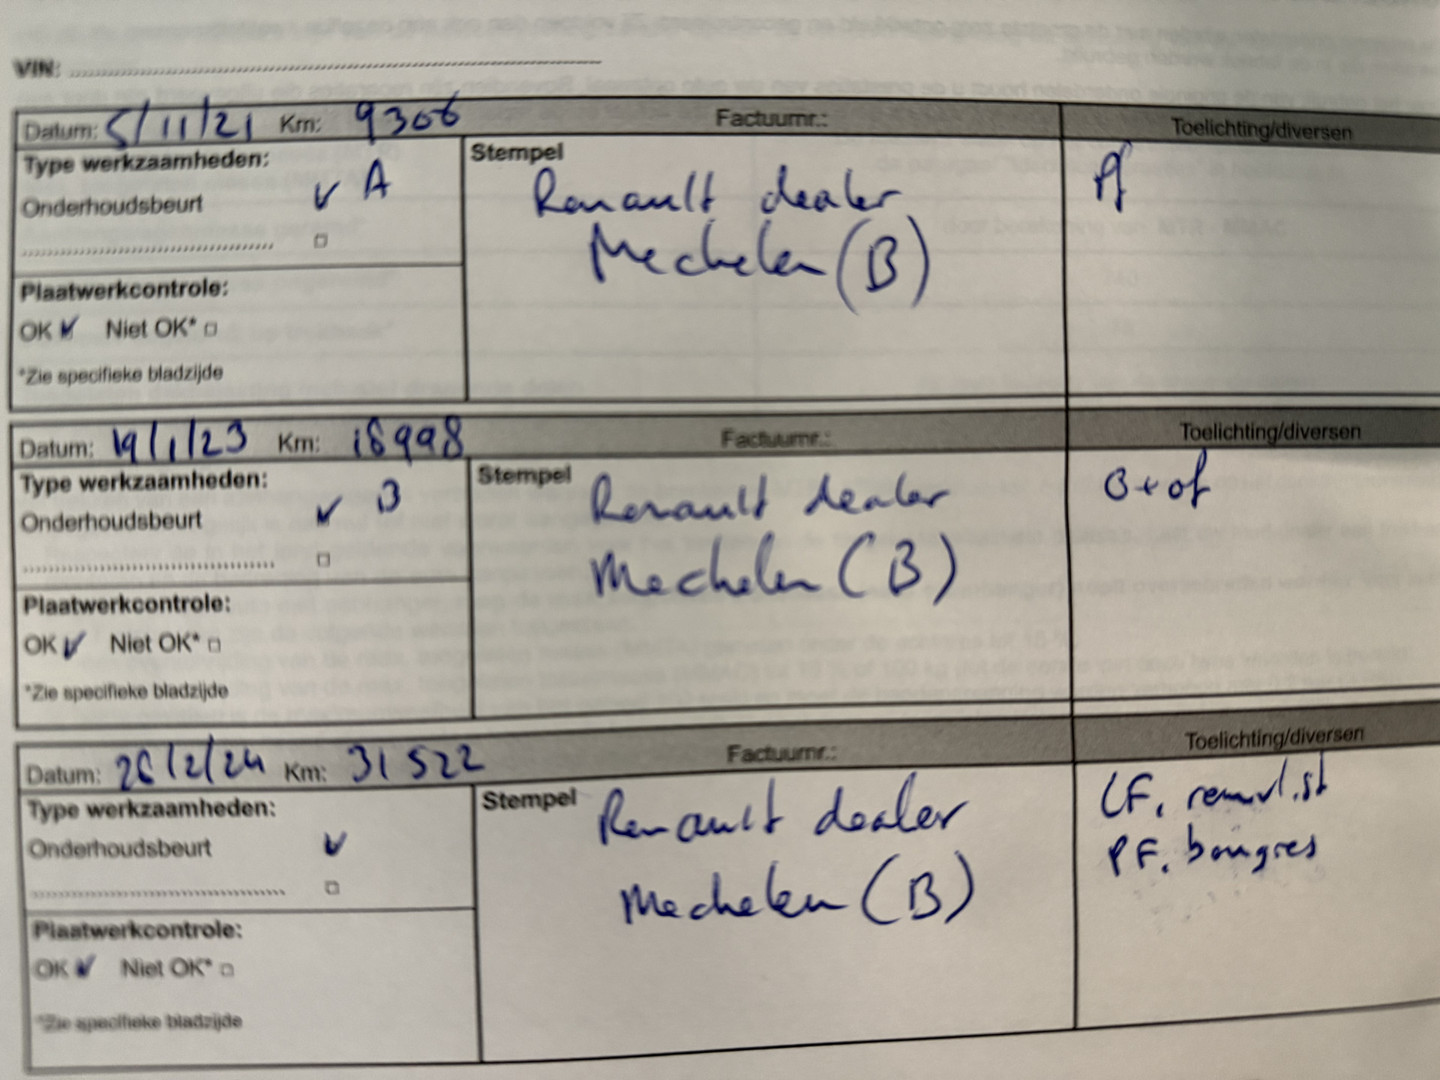 VIN:
Datum: 5/11/21 Km: 9306 Factuurnr.: Toelichting/diversen
Type werkzaamheden: Stempel
Onderhoudsbeurt A Renault dealer
Mechelen (B)
Plaatwerkcontrole:
OK Niet OK*
*Zie specifieke bladzijde
Datum: 19/1/23 Km: 18998 Factuurnr.: Toelichting/diversen
Type werkzaamheden: Stempel
Onderhoudsbeurt B Renault dealer B+of
Mechelen (B)
Plaatwerkcontrole:
OK Niet OK*
*Zie specifieke bladzijde
Datum: 26/2/24 Km: 31522 Factuurnr.: Toelichting/diversen
Type werkzaamheden: Stempel
Onderhoudsbeurt Renault dealer LF, remvl.st
Mechelen (B) PF, bougies
Plaatwerkcontrole:
OK Niet OK*
*Zie specifieke bladzijde